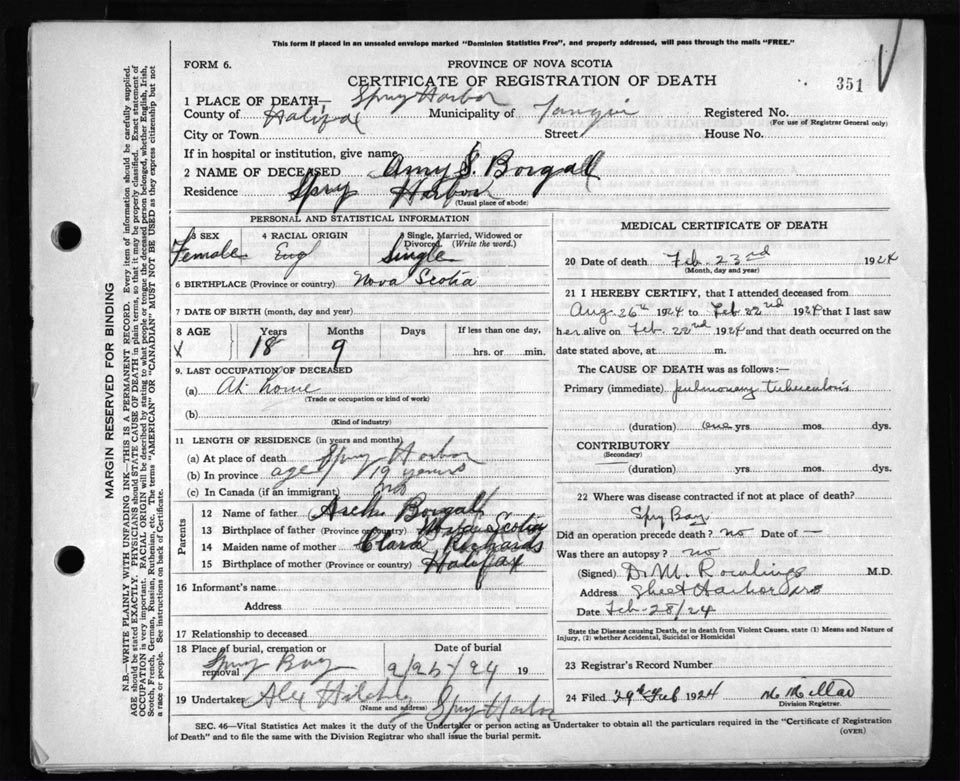 This form if placed in an unsealed envelope marked "Dominion Statistics Free", and properly addressed, will pass through the mails "FREE."
FORM 6.
PROVINCE OF NOVA SCOTIA
CERTIFICATE OF REGISTRATION OF DEATH
351
1 PLACE OF DEATH— Spry Harbor
County of Halifax Municipality of Registered No.
(For use of Registrar General only)
City or Town Street House No.
If in hospital or institution, give name
2 NAME OF DECEASED Amy S. Borgall
Residence Spry Harbor
(Usual place of abode)
PERSONAL AND STATISTICAL INFORMATION
3 SEX 4 RACIAL ORIGIN 5 Single, Married, Widowed or Divorced. (Write the word.)
Female Eng Single
6 BIRTHPLACE (Province or country) Nova Scotia
7 DATE OF BIRTH (month, day and year)
8 AGE Years Months Days If less than one day,
18 9 hrs. or min.
9. LAST OCCUPATION OF DECEASED
(a) At home
(Trade or occupation or kind of work)
(b)
(Kind of industry)
11 LENGTH OF RESIDENCE (in years and months)
(a) At place of death Spry Harbor
(b) In province age 19 years
(c) In Canada (if an immigrant)
Parents
12 Name of father Borgall
13 Birthplace of father (Province or country) Nova Scotia
14 Maiden name of mother Clara Richards
15 Birthplace of mother (Province or country) Halifax
16 Informant's name
Address
17 Relationship to deceased
18 Place of burial, cremation or removal Date of burial
Spry Bay 2/25/24 19
19 Undertaker Alex
(Name and address) Spry Harbor
MEDICAL CERTIFICATE OF DEATH
20 Date of death Feb. 23rd 1924
(Month, day and year)
21 I HEREBY CERTIFY, that I attended deceased from
Aug. 26th 1924 to Feb 22nd 1924 that I last saw
her alive on Feb. 22nd 1924 and that death occurred on the
date stated above, at m.
The CAUSE OF DEATH was as follows:—
Primary (immediate) pulmonary tuberculosis
(duration) one yrs. mos. dys.
CONTRIBUTORY
(Secondary)
(duration) yrs. mos. dys.
22 Where was disease contracted if not at place of death?
Spry Bay
Did an operation precede death? no Date of —
Was there an autopsy? no
(Signed) D. M. Rowlings M.D.
Address Sheet Harbor
Date Feb-28/24
State the Disease causing Death, or in death from Violent Causes, state (1) Means and Nature of
Injury, (2) whether Accidental, Suicidal or Homicidal
23 Registrar's Record Number
24 Filed 29th Feb 1924
Division Registrar.
SEC. 46—Vital Statistics Act makes it the duty of the Undertaker or person acting as Undertaker to obtain all the particulars required in the "Certificate of Registration
of Death" and to file the same with the Division Registrar who shall issue the burial permit.
(OVER)
MARGIN RESERVED FOR BINDING
N.B.—WRITE PLAINLY WITH UNFADING INK—THIS IS A PERMANENT RECORD. Every item of information should be carefully supplied.
AGE should be stated EXACTLY. PHYSICIANS should STATE CAUSE OF DEATH in plain terms, so that it may be properly classified. Exact statement of
OCCUPATION is very important. RACIAL ORIGIN will be described by stating to what people or tongue the deceased person belonged, whether English, Irish,
Scotch, French, German, Russian, Ruthenian, etc. The terms "AMERICAN" or "CANADIAN" MUST NOT BE USED as they express citizenship but not
a race or people. See instructions on back of Certificate.